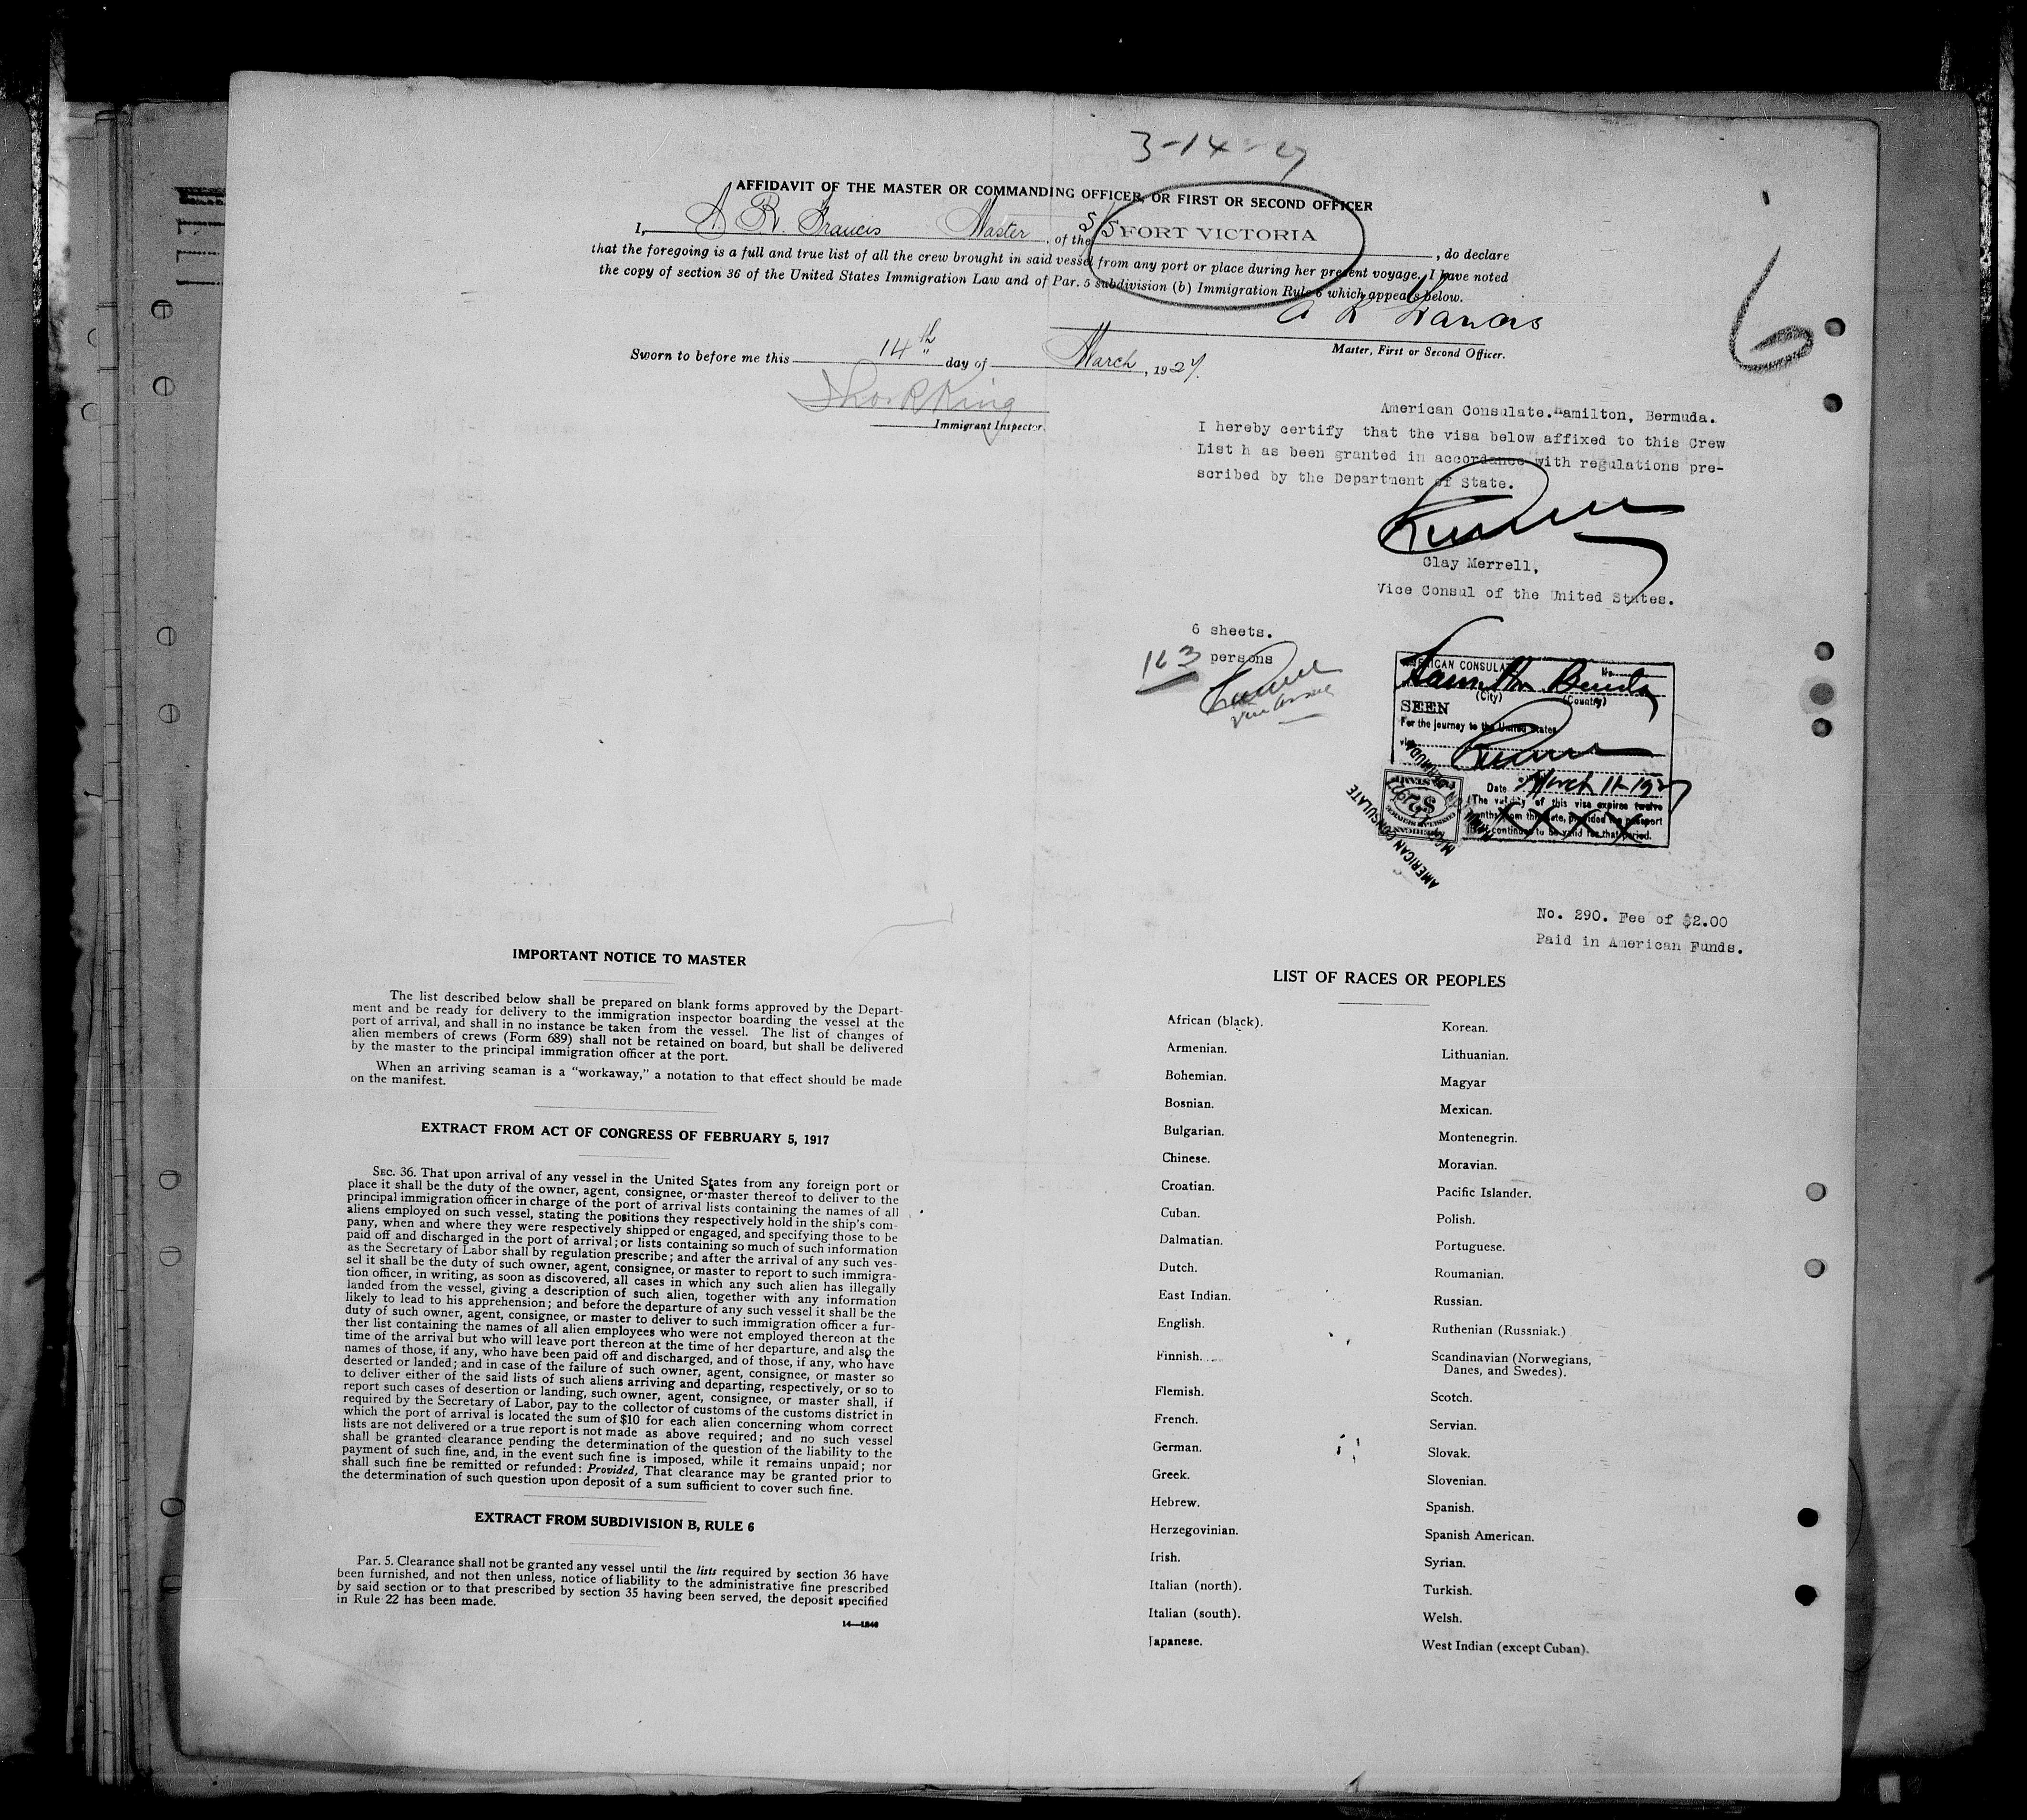 3-14-27
AFFIDAVIT OF THE MASTER OR COMMANDING OFFICER, OR FIRST OR SECOND OFFICER
I, A. R. Francis Master, of the SS FORT VICTORIA, do declare
that the foregoing is a full and true list of all the crew brought in said vessel from any port or place during her present voyage. I have noted
the copy of section 36 of the United States Immigration Law and of Par. 5 subdivision (b) Immigration Rule 6 which appears below.
A R Francis
Master, First or Second Officer.
Sworn to before me this 14th day of March, 1927.
Thos R King
Immigrant Inspector.
6
American Consulate. Hamilton, Bermuda.
I hereby certify that the visa below affixed to this Crew
List h as been granted in accordance with regulations pre-
scribed by the Department of State.
Clay Merrell,
Vice Consul of the United States.
6 sheets.
163 persons
Vice Consul
AMERICAN CONSULATE No.
Hamilton Bermuda
(City) (Country)
SEEN
For the journey to the United States
via
Date March 11-1927
The validity of this visa expires twelve
months from this date, provided the passport
continues to be valid for that period.
AMERICAN CONSULATE
No. 290. Fee of $2.00
Paid in American Funds.
IMPORTANT NOTICE TO MASTER
The list described below shall be prepared on blank forms approved by the Depart-
ment and be ready for delivery to the immigration inspector boarding the vessel at the
port of arrival, and shall in no instance be taken from the vessel. The list of changes of
alien members of crews (Form 689) shall not be retained on board, but shall be delivered
by the master to the principal immigration officer at the port.
When an arriving seaman is a "workaway," a notation to that effect should be made
on the manifest.
EXTRACT FROM ACT OF CONGRESS OF FEBRUARY 5, 1917
SEC. 36. That upon arrival of any vessel in the United States from any foreign port or
place it shall be the duty of the owner, agent, consignee, or master thereof to deliver to the
principal immigration officer in charge of the port of arrival lists containing the names of all
aliens employed on such vessel, stating the positions they respectively hold in the ship's com-
pany, when and where they were respectively shipped or engaged, and specifying those to be
paid off and discharged in the port of arrival; or lists containing so much of such information
as the Secretary of Labor shall by regulation prescribe; and after the arrival of any such ves-
sel it shall be the duty of such owner, agent, consignee, or master to report to such immigra-
tion officer, in writing, as soon as discovered, all cases in which any such alien has illegally
landed from the vessel, giving a description of such alien, together with any information
likely to lead to his apprehension; and before the departure of any such vessel it shall be the
duty of such owner, agent, consignee, or master to deliver to such immigration officer a fur-
ther list containing the names of all alien employees who were not employed thereon at the
time of the arrival but who will leave port thereon at the time of her departure, and also the
names of those, if any, who have been paid off and discharged, and of those, if any, who have
deserted or landed; and in case of the failure of such owner, agent, consignee, or master so
to deliver either of the said lists of such aliens arriving and departing, respectively, or so to
report such cases of desertion or landing, such owner, agent, consignee, or master shall, if
required by the Secretary of Labor, pay to the collector of customs of the customs district in
which the port of arrival is located the sum of $10 for each alien concerning whom correct
lists are not delivered or a true report is not made as above required; and no such vessel
shall be granted clearance pending the determination of the question of the liability to the
payment of such fine, and, in the event such fine is imposed, while it remains unpaid; nor
shall such fine be remitted or refunded: Provided, That clearance may be granted prior to
the determination of such question upon deposit of a sum sufficient to cover such fine.
EXTRACT FROM SUBDIVISION B, RULE 6
Par. 5. Clearance shall not be granted any vessel until the lists required by section 36 have
been furnished, and not then unless, notice of liability to the administrative fine prescribed
by said section or to that prescribed by section 35 having been served, the deposit specified
in Rule 22 has been made.
14—1840
LIST OF RACES OR PEOPLES
African (black).
Armenian.
Bohemian.
Bosnian.
Bulgarian.
Chinese.
Croatian.
Cuban.
Dalmatian.
Dutch.
East Indian.
English.
Finnish.
Flemish.
French.
German.
Greek.
Hebrew.
Herzegovinian.
Irish.
Italian (north).
Italian (south).
Japanese.
Korean.
Lithuanian.
Magyar
Mexican.
Montenegrin.
Moravian.
Pacific Islander.
Polish.
Portuguese.
Roumanian.
Russian.
Ruthenian (Russniak.)
Scandinavian (Norwegians,
Danes, and Swedes).
Scotch.
Servian.
Slovak.
Slovenian.
Spanish.
Spanish American.
Syrian.
Turkish.
Welsh.
West Indian (except Cuban).